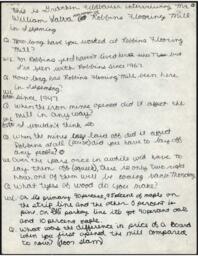 This is Gretchen Feldbauer interviewing Mr.
William Of Robbins Flooring Mill
in Ishpeming
Q. How long have you worked at Robbins Flooring
Mill?
Robbins yet haven't lived here but
I've been with Robbins since 1967.
Q. How long has Robbins Flooring Mill been here
in Ishpeming?
since, 1947
Q. When the iron mines opened did it affect the
mill in any way?
I wouldn't think it
Q. When the mines lay laid off did it affect
Robbins at all did you have to lay off
any people?
Over the years once in awhile we'd have to
lay them off There is only two right
now, one of them will be coming back Monday.
Q. What types of wood do you make?
It's primary % of maple on
the strip line and the other 5 percent is
pine. On the parkay line its got oak
and 10 percent maple.
Q. What was the difference in price of a board
when you first opened the mill compared
to now? (door slam)